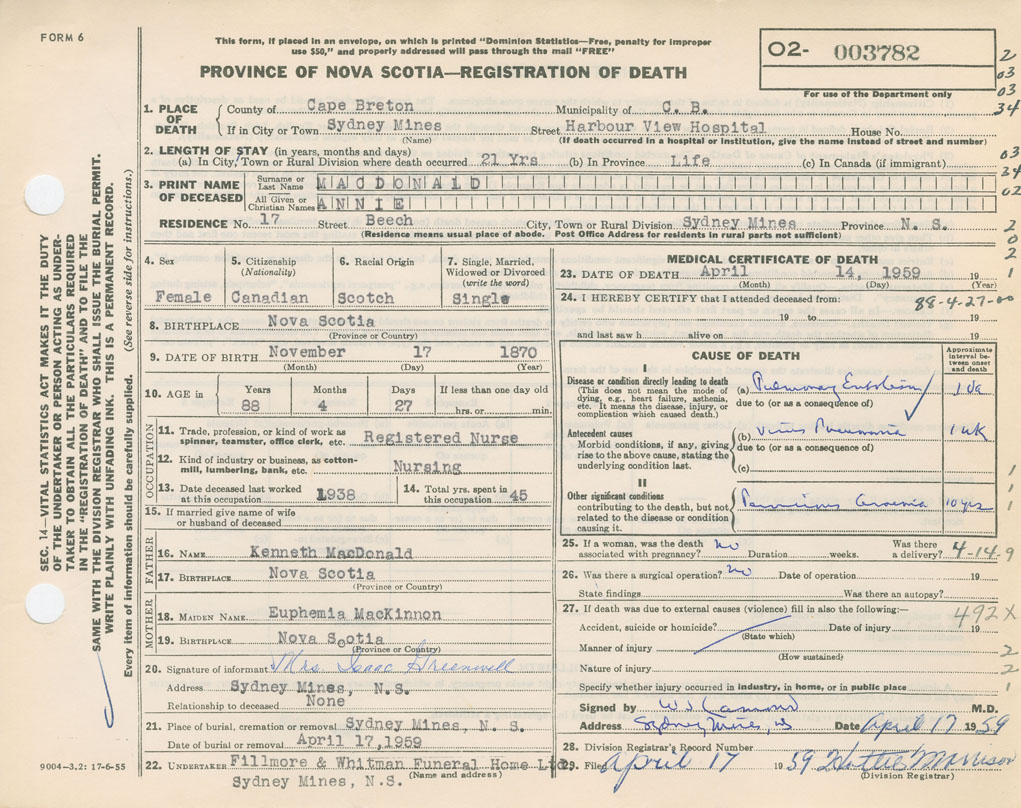 FORM 6
This form, if placed in an envelope, on which is printed "Dominion Statistics—Free, penalty for improper
use $50," and properly addressed will pass through the mail "FREE"
PROVINCE OF NOVA SCOTIA—REGISTRATION OF DEATH
O2- 003782
For use of the Department only
2
03
03
34
03
34
02
2
0
2
1
1. PLACE OF DEATH County of Cape Breton Municipality of C. B.
If in City or Town Sydney Mines Street Harbour View Hospital House No.
(Name) (If death occurred in a hospital or institution, give the name instead of street and number)
2. LENGTH OF STAY (in years, months and days)
(a) In City, Town or Rural Division where death occurred 21 Yrs (b) In Province Life (c) In Canada (if immigrant)
3. PRINT NAME OF DECEASED Surname or Last Name MACDONALD
All Given or Christian Names ANNIE
RESIDENCE No. 17 Street Beech City, Town or Rural Division Sydney Mines Province N. S.
(Residence means usual place of abode. Post Office Address for residents in rural parts not sufficient)
4. Sex Female
5. Citizenship (Nationality) Canadian
6. Racial Origin Scotch
7. Single, Married, Widowed or Divorced (write the word) Single
8. BIRTHPLACE Nova Scotia
(Province or Country)
9. DATE OF BIRTH November 17 1870
(Month) (Day) (Year)
10. AGE in Years 88 Months 4 Days 27 If less than one day old hrs. or min.
OCCUPATION
11. Trade, profession, or kind of work as spinner, teamster, office clerk, etc. Registered Nurse
12. Kind of industry or business, as cotton-mill, lumbering, bank, etc. Nursing
13. Date deceased last worked at this occupation 1938
14. Total yrs. spent in this occupation 45
15. If married give name of wife or husband of deceased
FATHER
16. NAME Kenneth MacDonald
17. BIRTHPLACE Nova Scotia
(Province or Country)
MOTHER
18. MAIDEN NAME Euphemia MacKinnon
19. BIRTHPLACE Nova Scotia
(Province or Country)
20. Signature of informant Mrs. Isaac Greenwell
Address Sydney Mines, N.S.
Relationship to deceased None
21. Place of burial, cremation or removal Sydney Mines, N. S.
Date of burial or removal April 17,1959
22. UNDERTAKER Fillmore & Whitman Funeral Home Ltd.
(Name and address)
Sydney Mines, N.S.
MEDICAL CERTIFICATE OF DEATH
23. DATE OF DEATH April 14, 1959 19
(Month) (Day) (Year)
24. I HEREBY CERTIFY that I attended deceased from: 88-4-27-00
19 to 19
and last saw h alive on 19
CAUSE OF DEATH
Approximate interval between onset and death
I
Disease or condition directly leading to death
(This does not mean the mode of dying, e.g., heart failure, asthenia, etc. It means the disease, injury, or complication which caused death.)
(a) Pulmonary Embolism 1 da
due to (or as a consequence of)
Antecedent causes
Morbid conditions, if any, giving rise to the above cause, stating the underlying condition last.
(b) Virus Pneumonia 1 wk
due to (or as a consequence of)
(c)
II
Other significant conditions
contributing to the death, but not related to the disease or condition causing it.
Pernicious Anaemia 10 yrs
1
1
1
25. If a woman, was the death associated with pregnancy? no Duration weeks. Was there a delivery? 4-14-9
26. Was there a surgical operation? no Date of operation 19
State findings Was there an autopsy?
27. If death was due to external causes (violence) fill in also the following:—
492X
Accident, suicide or homicide? Date of injury 19
(State which)
Manner of injury 2
(How sustained)
Nature of injury 2
Specify whether injury occurred in industry, in home, or in public place 1
Signed by M.D.
Address Sydney Mines, NS Date April 17 1959
28. Division Registrar's Record Number
29. Filed April 17 1959 Hattie Morrison
(Division Registrar)
SEC. 14—VITAL STATISTICS ACT MAKES IT THE DUTY
OF THE UNDERTAKER OR PERSON ACTING AS UNDER-
TAKER TO OBTAIN ALL THE PARTICULARS REQUIRED
IN THE "REGISTRATION OF DEATH" AND TO FILE THE
SAME WITH THE DIVISION REGISTRAR WHO SHALL ISSUE THE BURIAL PERMIT.
WRITE PLAINLY WITH UNFADING INK. THIS IS A PERMANENT RECORD.
Every item of information should be carefully supplied. (See reverse side for instructions.)
9004-3.2: 17-6-55